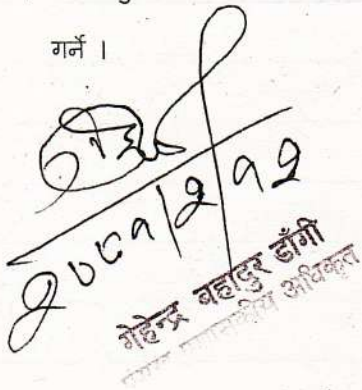 गर्ने ।
२०८१/२/१२
गेहेन्द्र बहादुर डाँगी
प्रशासकीय अधिकृत